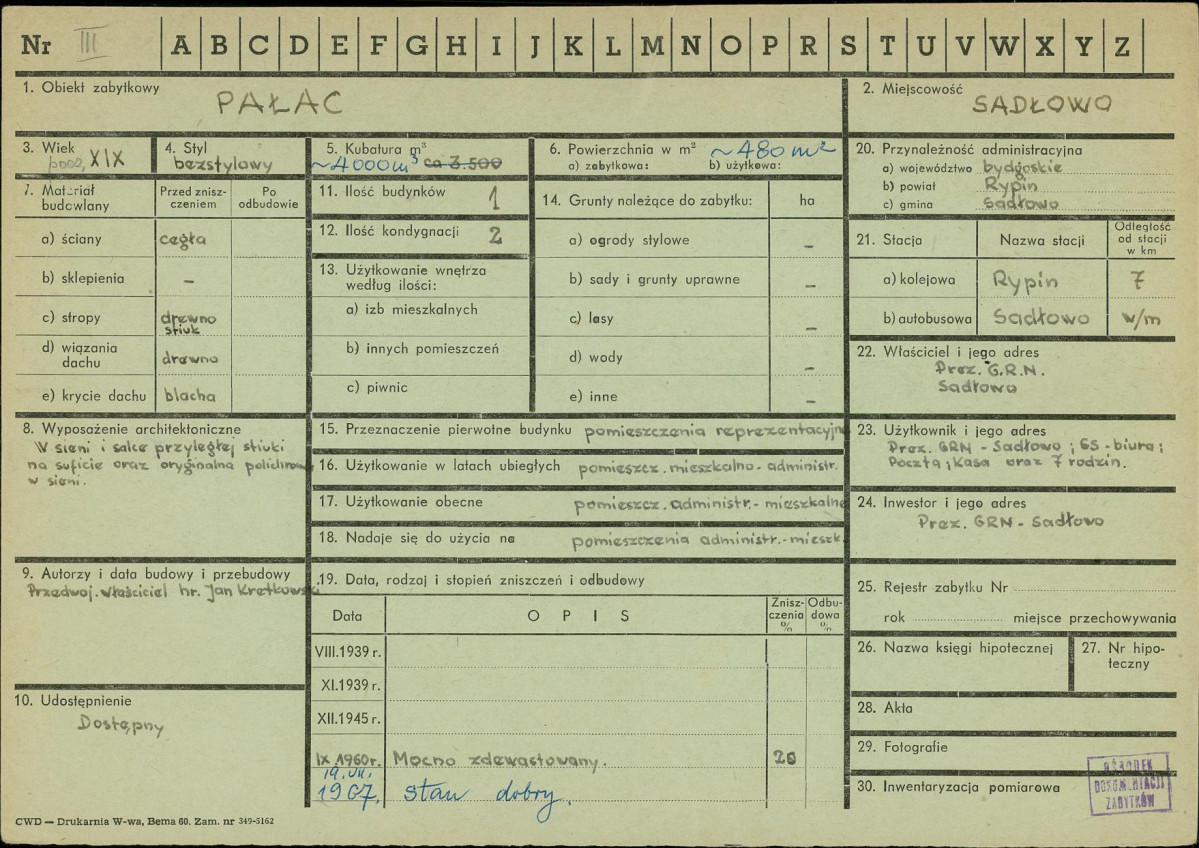 Nr III A B C D E F G H I J K L M N O P R S T U V W X Y Z
1. Obiekt zabytkowy
PAŁAC
2. Miejscowość
SADŁOWO
3. Wiek
XIX
4. Styl
bezstylowy
5. Kubatura m³
~4000 m³ ca 3.500
6. Powierzchnia w m²
~480 m²
a) zabytkowa: b) użytkowa:
20. Przynależność administracyjna
a) województwo bydgoskie
b) powiat Rypin
c) gmina Sadłowo
7. Materiał budowlany
Przed znisz-
czeniem
Po
odbudowie
a) ściany cegła
b) sklepienia –
c) stropy drewno
stiuk
d) wiązania
dachu drewno
e) krycie dachu blacha
11. Ilość budynków 1
12. Ilość kondygnacji 2
13. Użytkowanie wnętrza
według ilości:
a) izb mieszkalnych
b) innych pomieszczeń
c) piwnic
14. Grunty należące do zabytku: ha
a) ogrody stylowe –
b) sady i grunty uprawne –
c) lasy –
d) wody –
e) inne –
21. Stacja Nazwa stacji
Odległość
od stacji
w km
a) kolejowa Rypin 7
b) autobusowa Sadłowo w/m
22. Właściciel i jego adres
Prez. G.R.N.
Sadłowo
8. Wyposażenie architektoniczne
W sieni i salce przyległej stiuki
na suficie oraz oryginalna polichromia
w sieni.
15. Przeznaczenie pierwotne budynku pomieszczenia reprezentacyjne
16. Użytkowanie w latach ubiegłych pomieszcz. mieszkalno-administr.
17. Użytkowanie obecne pomieszcz. administr.-mieszkalne
18. Nadaje się do użycia na pomieszczenia administr.-mieszk.
23. Użytkownik i jego adres
Prez. GRN - Sadłowo; GS-biura;
Poczta; Kasa oraz 7 rodzin.
24. Inwestor i jego adres
Prez. GRN - Sadłowo
9. Autorzy i data budowy i przebudowy
Przedwoj. właściciel hr. Jan Kretkowski
19. Data, rodzaj i stopień zniszczeń i odbudowy
Data OPIS
Znisz-
czenia
%
Odbu-
dowa
%
VIII.1939 r.
XI.1939 r.
XII.1945 r.
IX 1960r. Mocno zdewastowany. 20
19.VII.
1967. stan dobry.
10. Udostępnienie
Dostępny
25. Rejestr zabytku Nr
rok miejsce przechowywania
26. Nazwa księgi hipotecznej
27. Nr hipo-
teczny
28. Akta
29. Fotografie
30. Inwentaryzacja pomiarowa
OŚRODEK
DOKUMENTACJI
ZABYTKÓW
CWD — Drukarnia W-wa, Bema 60. Zam. nr 349-5162